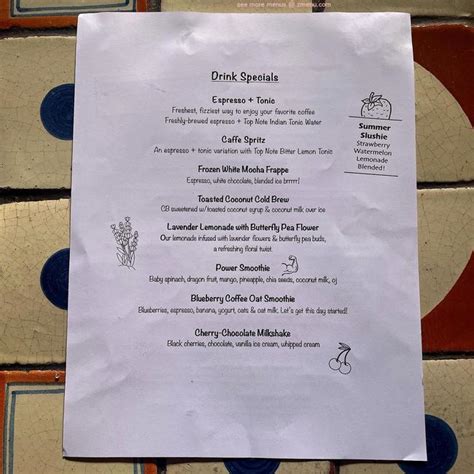 see more menus @ zmenu.com
Drink Specials
Espresso + Tonic
Freshest, fizziest way to enjoy your favorite coffee
Freshly-brewed espresso + Top Note Indian Tonic Water
Caffe Spritz
An espresso + tonic variation with Top Note Bitter Lemon Tonic
Frozen White Mocha Frappe
Espresso, white chocolate, blended ice brrrr!
Toasted Coconut Cold Brew
CB sweetened w/toasted coconut syrup & coconut milk over ice
Lavender Lemonade with Butterfly Pea Flower
Our lemonade infused with lavender flowers & butterfly pea buds,
a refreshing floral twist.
Power Smoothie
Baby spinach, dragon fruit, mango, pineapple, chia seeds, coconut milk, oj
Blueberry Coffee Oat Smoothie
Blueberries, espresso, banana, yogurt, oats & oat milk. Let's get this day started!
Cherry-Chocolate Milkshake
Black cherries, chocolate, vanilla ice cream, whipped cream
Summer
Slushie
Strawberry
Watermelon
Lemonade
Blended!